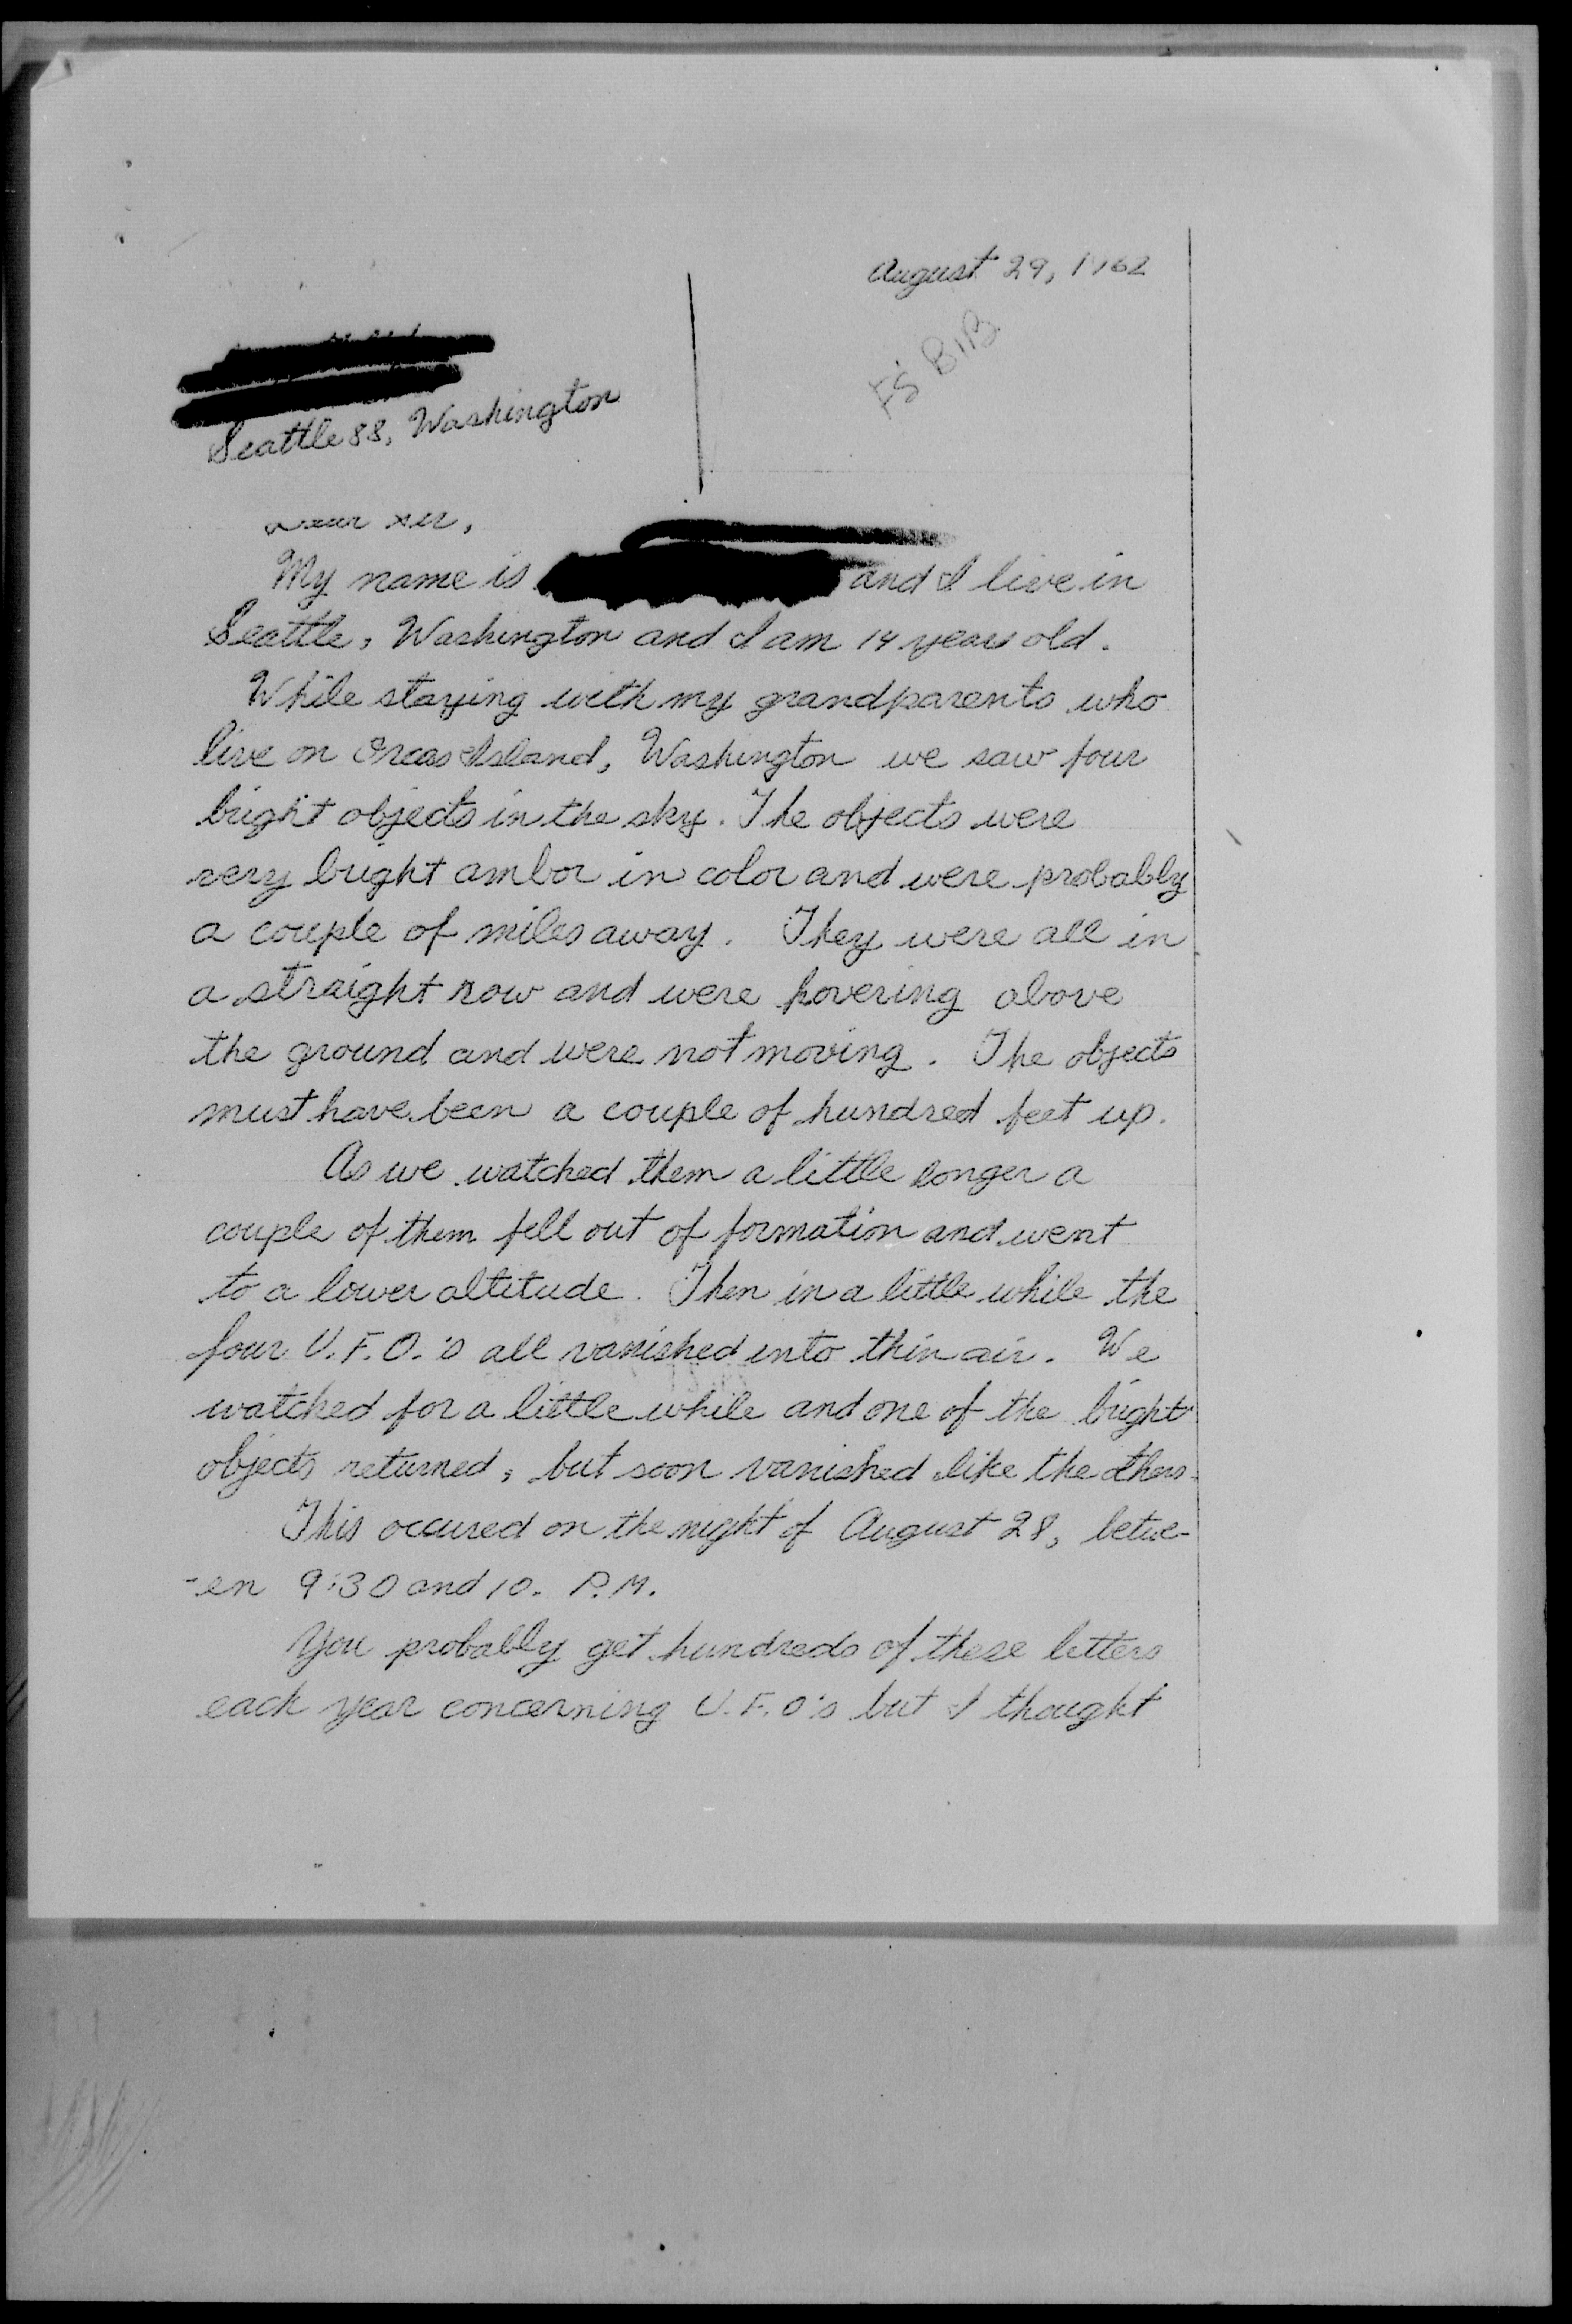 August 29, 1962
FS B1B
Seattle 88, Washington
Dear sir,
My name is and I live in
Seattle, Washington and I am 14 years old.
While staying with my grandparents who
live on Orcas Island, Washington we saw four
bright objects in the sky. The objects were
very bright ambor in color and were probably
a couple of miles away. They were all in
a straight row and were hovering above
the ground and were not moving. The objects
must have been a couple of hundred feet up.
As we watched them a little longer a
couple of them fell out of formation and went
to a lower altitude. Then in a little while the
four U.F.O.'s all vanished into thin air. We
watched for a little while and one of the bright
objects returned, but soon vanished like the others.
This occured on the night of August 28, betwe-
-en 9:30 and 10. P.M.
You probably get hundreds of these letters
each year concerning U.F.O's but I thought